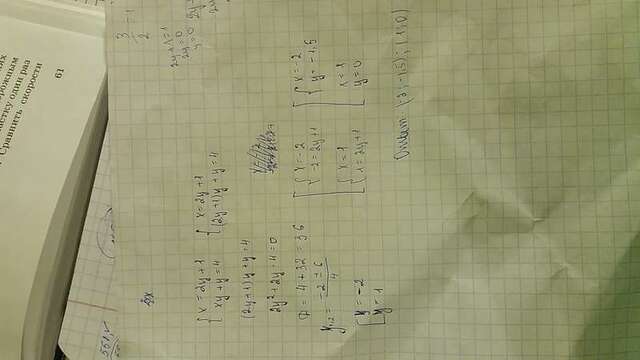 частку один раз
Сравнить скорости
61
3/2 = 1
2y+1=1
2y=0
y=0
{ x = 2y+1
xy+y=4
{ x=2y+1
(2y+1)y+y=4
(2y+1)y+y=4
2y²+2y-4=0
D = 4+32 = 36
y₁,₂ = (-2±6)/4
[ y=-2
y=1
[ { x=-2
-2=2y+1
{ x=1
1=2y+1
[ { x=-2
y=-1,5
x=1
y=0
Ответ: (-2;-1,5); (1;0)